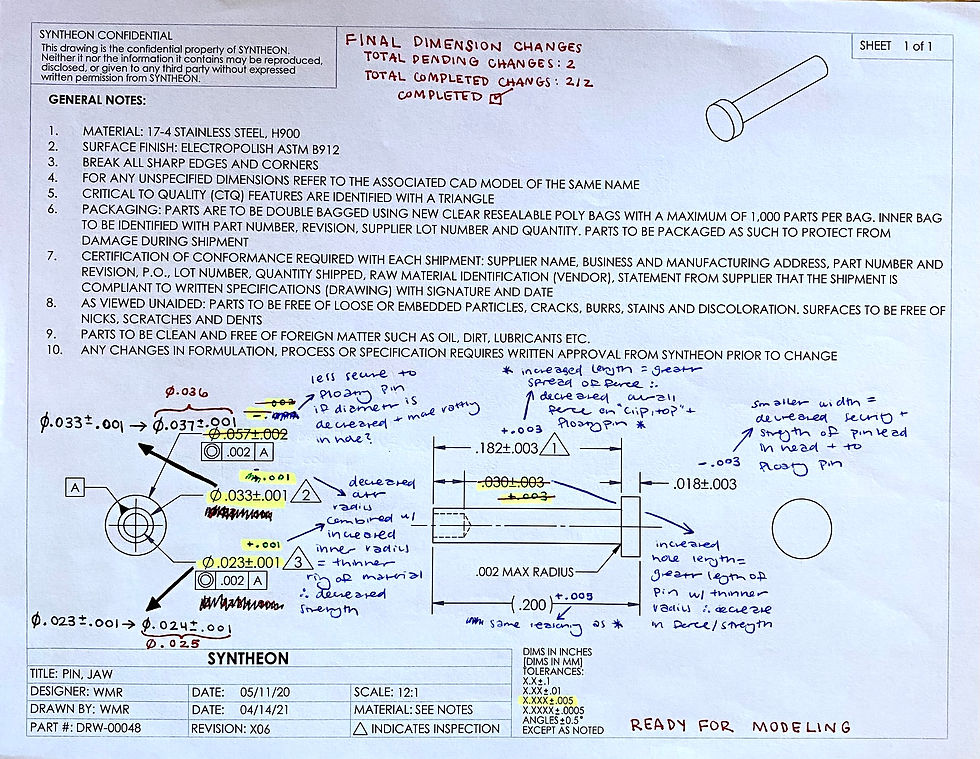 SYNTHEON CONFIDENTIAL
This drawing is the confidential property of SYNTHEON.
Neither it nor the information it contains may be reproduced,
disclosed, or given to any third party without expressed
written permission from SYNTHEON.
FINAL DIMENSION CHANGES
TOTAL PENDING CHANGES: 2
TOTAL COMPLETED CHANGS: 2/2
COMPLETED ☑
SHEET 1 of 1
GENERAL NOTES:
1. MATERIAL: 17-4 STAINLESS STEEL, H900
2. SURFACE FINISH: ELECTROPOLISH ASTM B912
3. BREAK ALL SHARP EDGES AND CORNERS
4. FOR ANY UNSPECIFIED DIMENSIONS REFER TO THE ASSOCIATED CAD MODEL OF THE SAME NAME
5. CRITICAL TO QUALITY (CTQ) FEATURES ARE IDENTIFIED WITH A TRIANGLE
6. PACKAGING: PARTS ARE TO BE DOUBLE BAGGED USING NEW CLEAR RESEALABLE POLY BAGS WITH A MAXIMUM OF 1,000 PARTS PER BAG. INNER BAG
TO BE IDENTIFIED WITH PART NUMBER, REVISION, SUPPLIER LOT NUMBER AND QUANTITY. PARTS TO BE PACKAGED AS SUCH TO PROTECT FROM
DAMAGE DURING SHIPMENT
7. CERTIFICATION OF CONFORMANCE REQUIRED WITH EACH SHIPMENT: SUPPLIER NAME, BUSINESS AND MANUFACTURING ADDRESS, PART NUMBER AND
REVISION, P.O., LOT NUMBER, QUANTITY SHIPPED, RAW MATERIAL IDENTIFICATION (VENDOR), STATEMENT FROM SUPPLIER THAT THE SHIPMENT IS
COMPLIANT TO WRITTEN SPECIFICATIONS (DRAWING) WITH SIGNATURE AND DATE
8. AS VIEWED UNAIDED: PARTS TO BE FREE OF LOOSE OR EMBEDDED PARTICLES, CRACKS, BURRS, STAINS AND DISCOLORATION. SURFACES TO BE FREE OF
NICKS, SCRATCHES AND DENTS
9. PARTS TO BE CLEAN AND FREE OF FOREIGN MATTER SUCH AS OIL, DIRT, LUBRICANTS ETC.
10. ANY CHANGES IN FORMULATION, PROCESS OR SPECIFICATION REQUIRES WRITTEN APPROVAL FROM SYNTHEON PRIOR TO CHANGE
Ø.036
Ø.033±.001 → Ø.037±.001
Ø.057±.002
⌾ .002 A
less secure to
floaty pin
if diameter is
decreased +
in hole?
* increased length = greatr
spread of force ∴
decreased
force on "clip, top" +
floaty pin *
smaller width =
decreased security +
strength of pin head
in head + to
floaty pin
+.003
.182±.003 1
-.003
.018±.003
.030±.003
+.003
A
-.001
Ø.033±.001 2
decreased
radius
combined w/
increased
inner radius
= thinner
ring of material
∴ decreased
strength
+.001
Ø.023±.001 3
⌾ .002 A
Ø.023±.001 → Ø.024±.001
Ø.025
.002 MAX RADIUS
(.200) +.005
same reasoning as *
increased
hole length=
greatr legth of
pin w/ thinner
radius ∴ decrease
in force/stregth
SYNTHEON
TITLE: PIN, JAW
DESIGNER: WMR DATE: 05/11/20 SCALE: 12:1
DRAWN BY: WMR DATE: 04/14/21 MATERIAL: SEE NOTES
PART #: DRW-00048 REVISION: X06 △ INDICATES INSPECTION
DIMS IN INCHES
[DIMS IN MM]
TOLERANCES:
X.X±.1
X.XX±.01
X.XXX±.005
X.XXXX±.0005
ANGLES±0.5°
EXCEPT AS NOTED
READY FOR MODELING